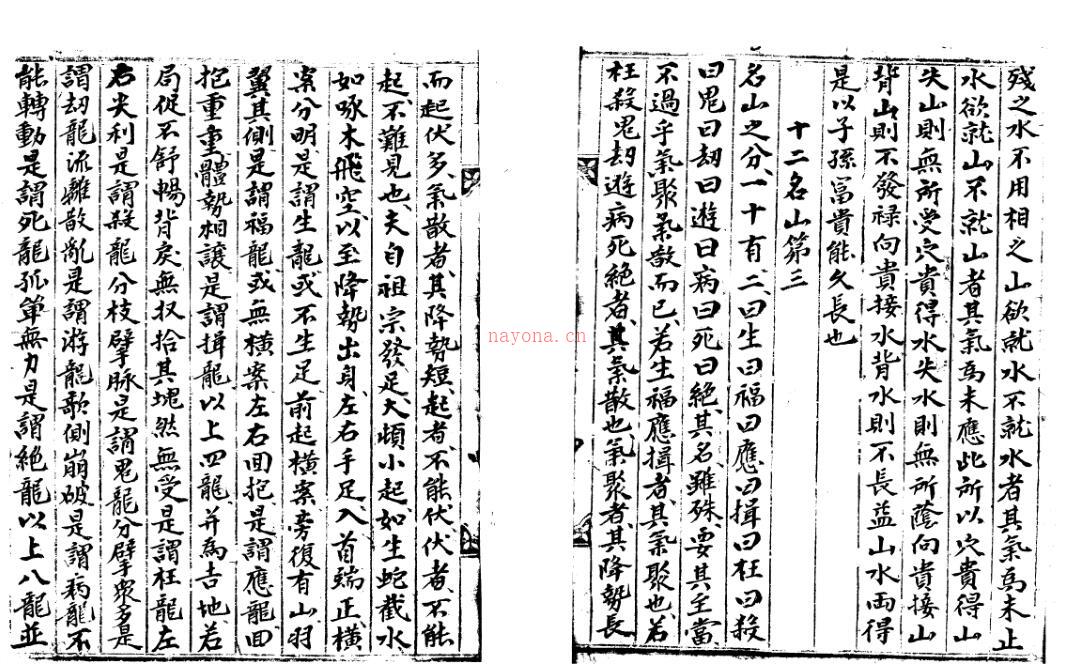 殘之水不用相之山欲就水不就水者其氣為未止
水欲就山不就山者其氣為未應此所以穴貴得山
失山則無所受穴貴得水失水則無所蔭向貴接山
背山則不發祿向貴接水背水則不長益山水両得
是以子孫富貴能久長也
十二名山第三
名山之分一十有二曰生曰福曰應曰揖曰枉曰殺
曰鬼曰刧曰遊曰病曰死曰絕其名雖殊要其主當
不過乎氣聚氣散而已若生福應揖者其氣聚也若
枉殺鬼刧遊病死絕者其氣散也氣聚者其降勢長
而起伏多氣散者其降勢短起者不能伏伏者不能
起不難見也夫自祖宗發足大頓小起如生蛇截水
如啄木飛空以至降勢出身左右手足入首端正橫
案分明是謂生龍或不生足前起橫案旁復有山羽
翼其側是謂福龍或無橫案左右回抱是謂應龍回
抱重重體勢相讓是謂揖龍以上四龍并為吉地若
局促不舒暢背戾無収拾其塊然無受是謂枉龍左
右尖利是謂殺龍分枝擘脉是謂鬼龍分擘衆多是
謂刧龍流離散亂是謂游龍欹側崩破是謂病龍不
能轉動是謂死龍孤單無力是謂絕龍以上八龍並
nayona.cn